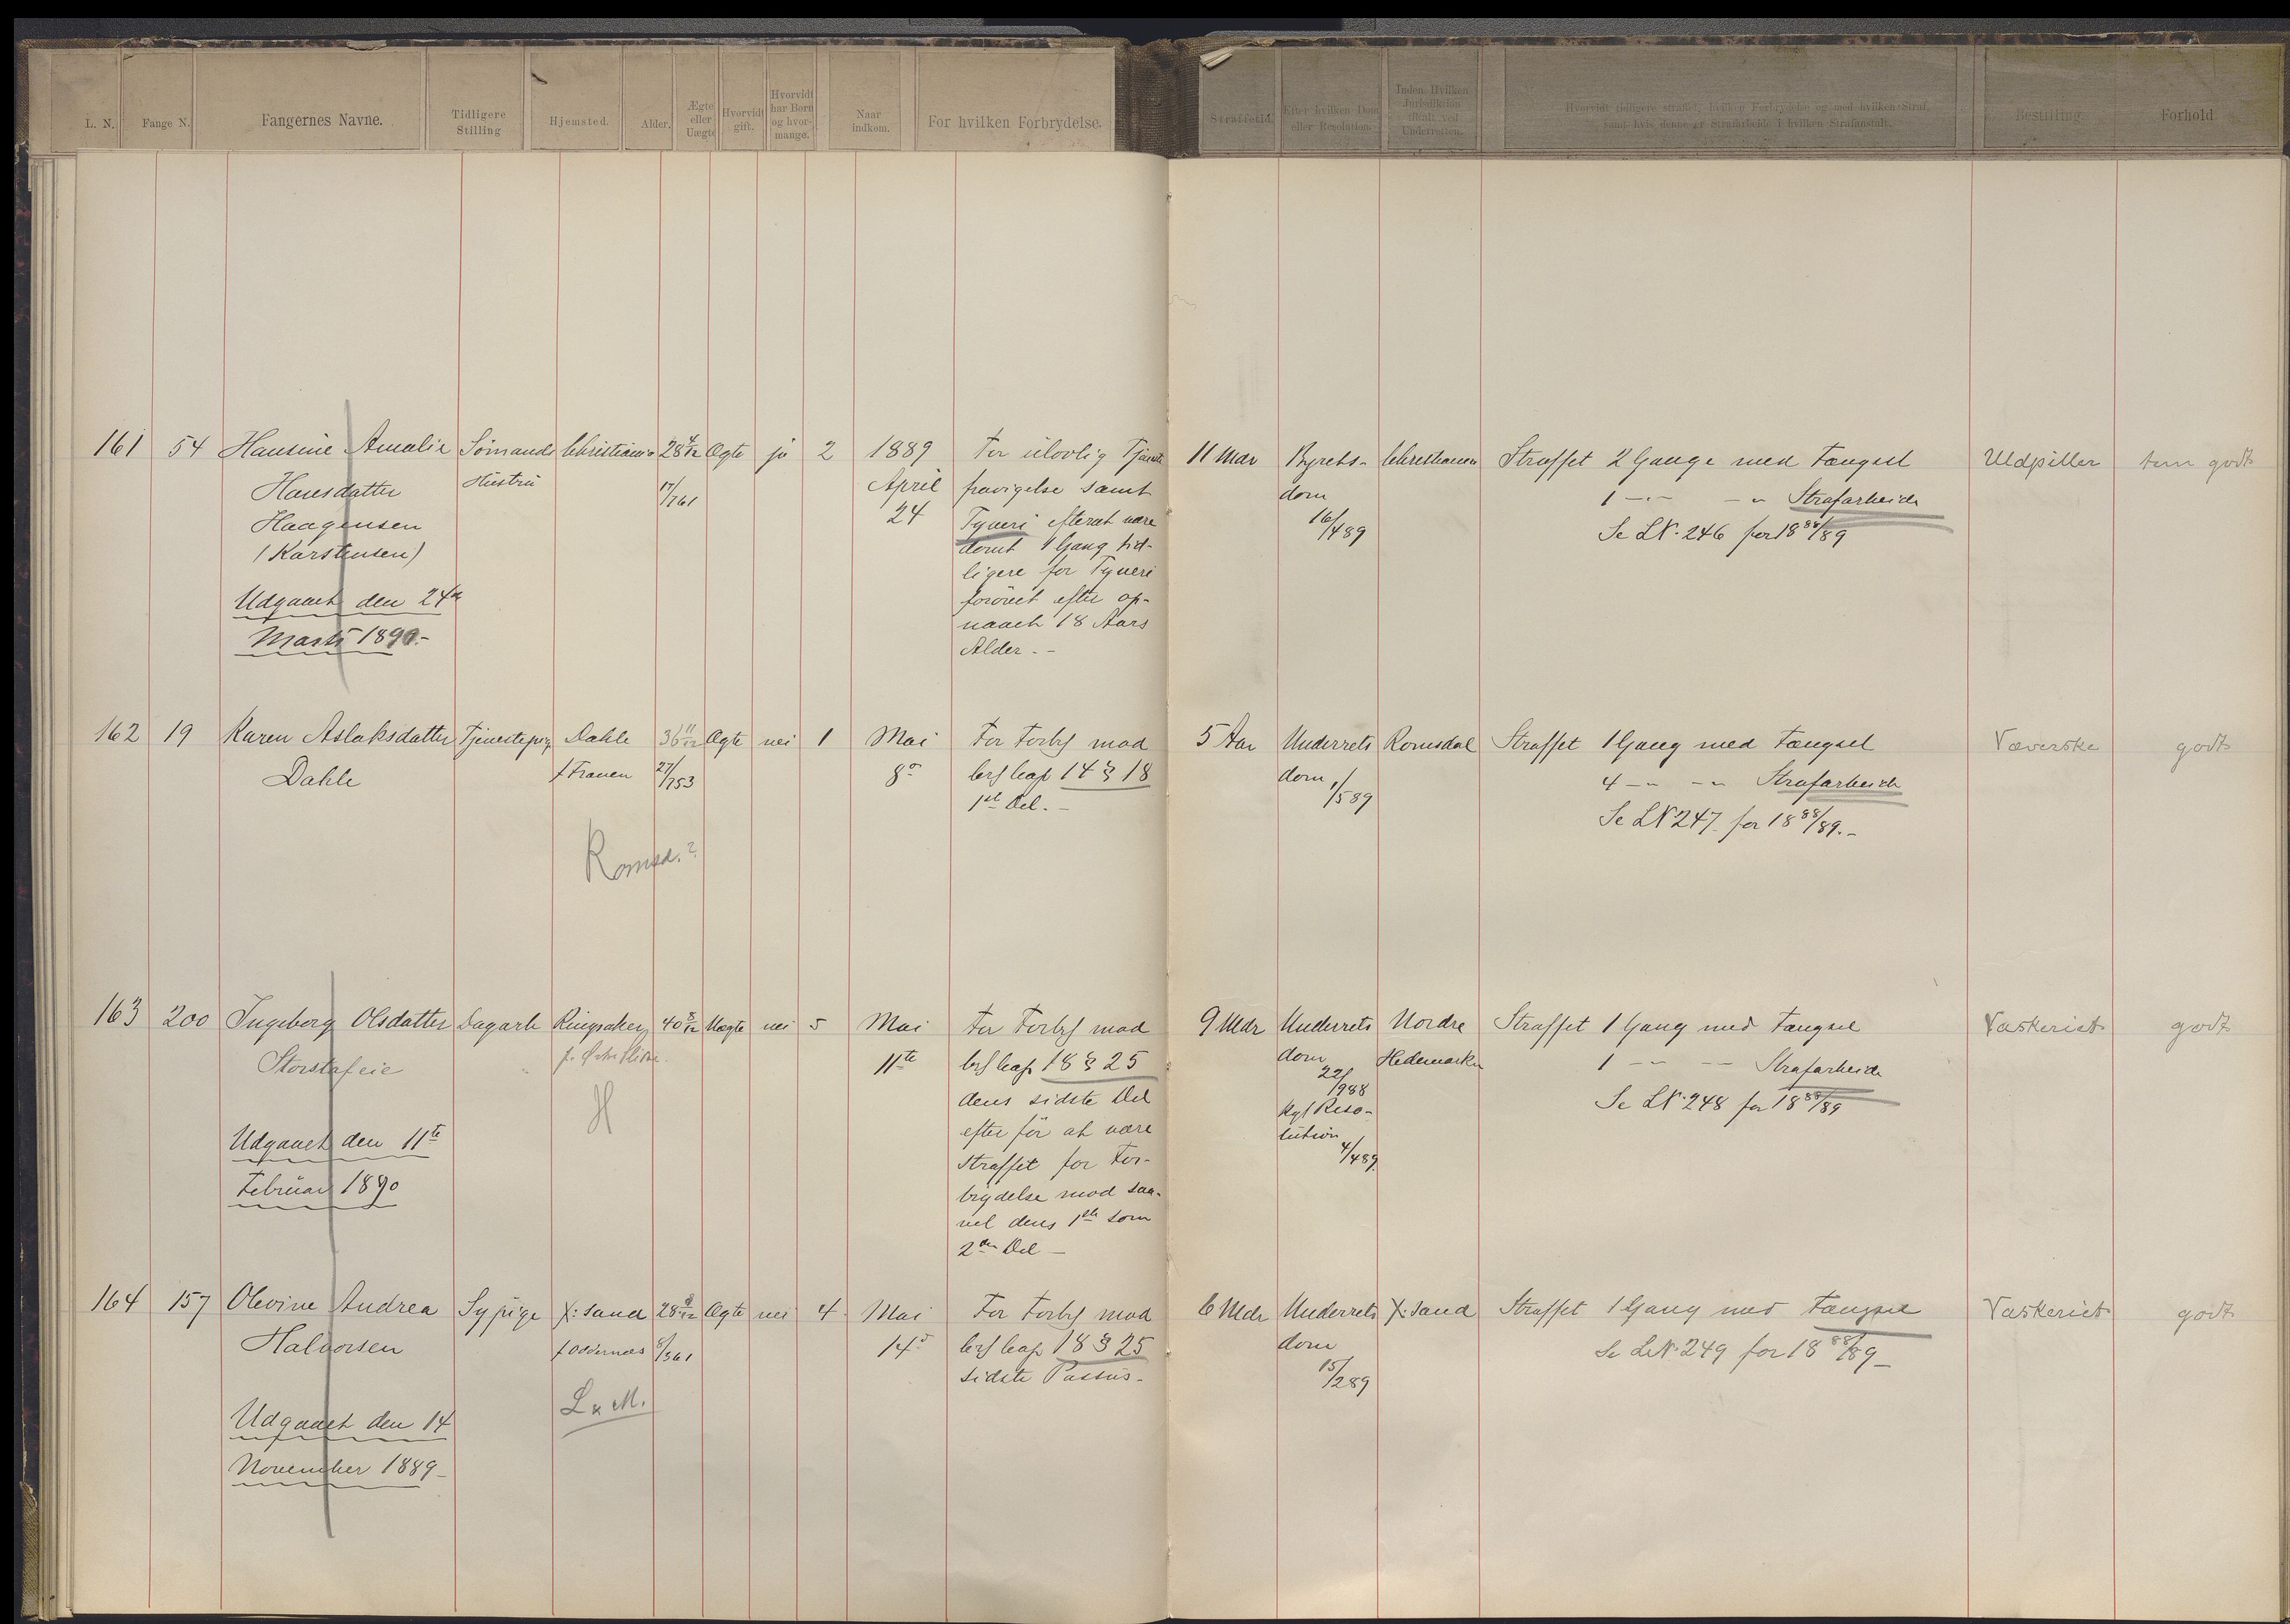 L. N.
Fange N.
Fangernes Navne.
Tidligere
Stilling
Hjemsted.
Alder.
Ægte
eller
Uægte
Hvorvidt
gift.
Hvorvidt
har Børn
og hvor-
mange.
Naar
indkom.
For hvilken Forbrydelse.
Straffetid.
Efter hvilken Dom
eller Resolution.
Inden Hvilken
Jurisdiktion
tiltalt ved
Underretten.
Hvorvidt tidligere straffet, hvilken Forbrydelse og med hvilken Straf,
samt hvis denne er Strafarbeide i hvilken Strafanstalt.
Bestilling
Forhold
161 54 Hansine Amalie Sömands Christiania 28 4/12 Ægte ja 2 1889 For ulovlig Tjeneste 11 Mdr Byrets- Christiania Straffet 2 Gange med Fængsel Uldpiller tem godt
Hansdatter Hustru 17/1261 April fravigelse samt dom 1 -"- -"- Strafarbeide
Haagensen 24 Tyveri efterat være 16/489 Se LN. 246 for 18 88/89
(Karstensen) dömt 1 Gang tid-
ligere for Tyveri
Udgaaet den 24de forövet efter op-
Marts 1890.- naaet 18 Aars
Alder. -
162 19 Karen Aslaksdatter Tjenestepige Dahle 36 11/12 Ægte nei 1 Mai For Forbr mod 5 Aar Underrets Romsdal Straffet 1 Gang med Fængsel Væverske godt
Dahle f Frænen 27/753 8de Crl Cap 14 § 18 dom 1/589 4 -"- -"- Strafarbeide
1ste Del. - Se LN 247 for 18 88/89.-
Romsd.?
163 200 Ingeborg Olsdatter Dagarb Ringsaker 40 8/12 Uægte nei 5 Mai For Forbr mod 9 Mdr Underrets Nordre Straffet 1 Gang med Fængsel Vaskeriet godt
Storstafeie 11te Crl Cap 18 § 25 dom Hedemarken 1 -"- -"- Strafarbeide
H dens sidste Del 22/988 Se LN. 248 for 18 88/89
Udgaaet den 11te efter för at være Kgl Reso-
Februar 1890 straffet for For- lution 4/489
brydelse mod saa-
vel dens 1ste som
2den Del -
164 157 Olevine Andrea Sypige X:sand 28 2/12 Ægte nei 4 Mai For Forbr mod 6 Mdr Underrets X:sand Straffet 1 Gang med Fængsel Vaskeriet godt
Halvorsen f Oddernæs 8/361 14de Crl Cap 18 § 25 dom Se LN. 249 for 18 88/89 -
sidste Passus. 15/289
L & M.
Udgaaet den 14
November 1889 -